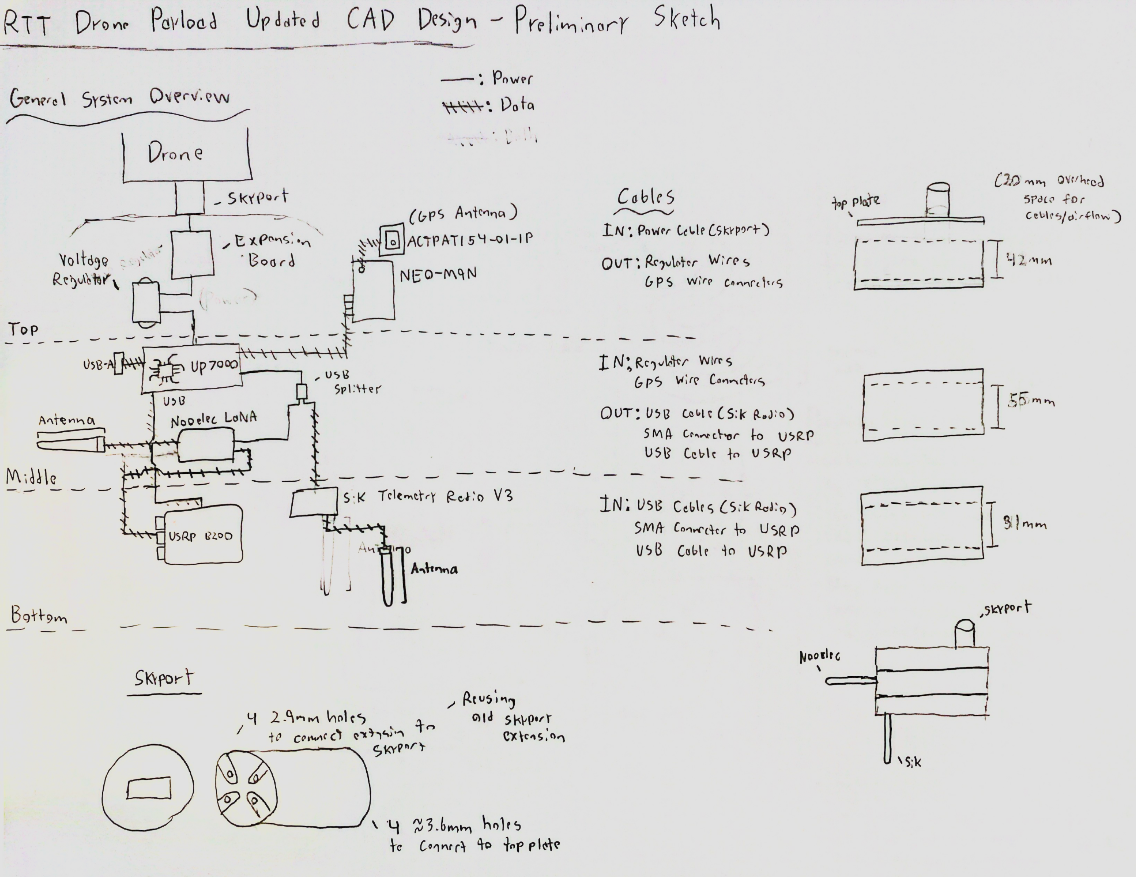 RTT Drone Payload Updated CAD Design - Preliminary Sketch
General System Overview
: Power
: Data
Drone
SKYPORT
Expansion
Board
Voltage
Regulator
(GPS Antenna)
ACTPAT154-01-1P
NEO-M9N
Top
USB-A
UP7000
USB
USB
Splitter
Antenna
Nooelec LaNA
Middle
SiK Telemetry Radio V3
USRP B200
Antenna
Bottom
Cables
IN: Power Cable (Skyport)
OUT: Regulator Wires
GPS Wire Connecters
IN: Regulator Wires
GPS Wire Connecters
OUT: USB Cable (SiK Radio)
SMA Connector to USRP
USB Cable to USRP
IN: USB Cables (SiK Radio)
SMA Connecter to USRP
USB Cable to USRP
top plate
(20 mm overhead
space for
cables/airflow)
42mm
mm
31mm
SKYPORT
Nooelec
SiK
SKYPORT
4 2.9mm holes
to connect extension to
SKYPORT
Reusing
old skyport
extension
4 ≈3.6mm holes
to connect to top plate